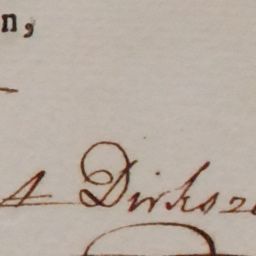 n,
A Dirksz